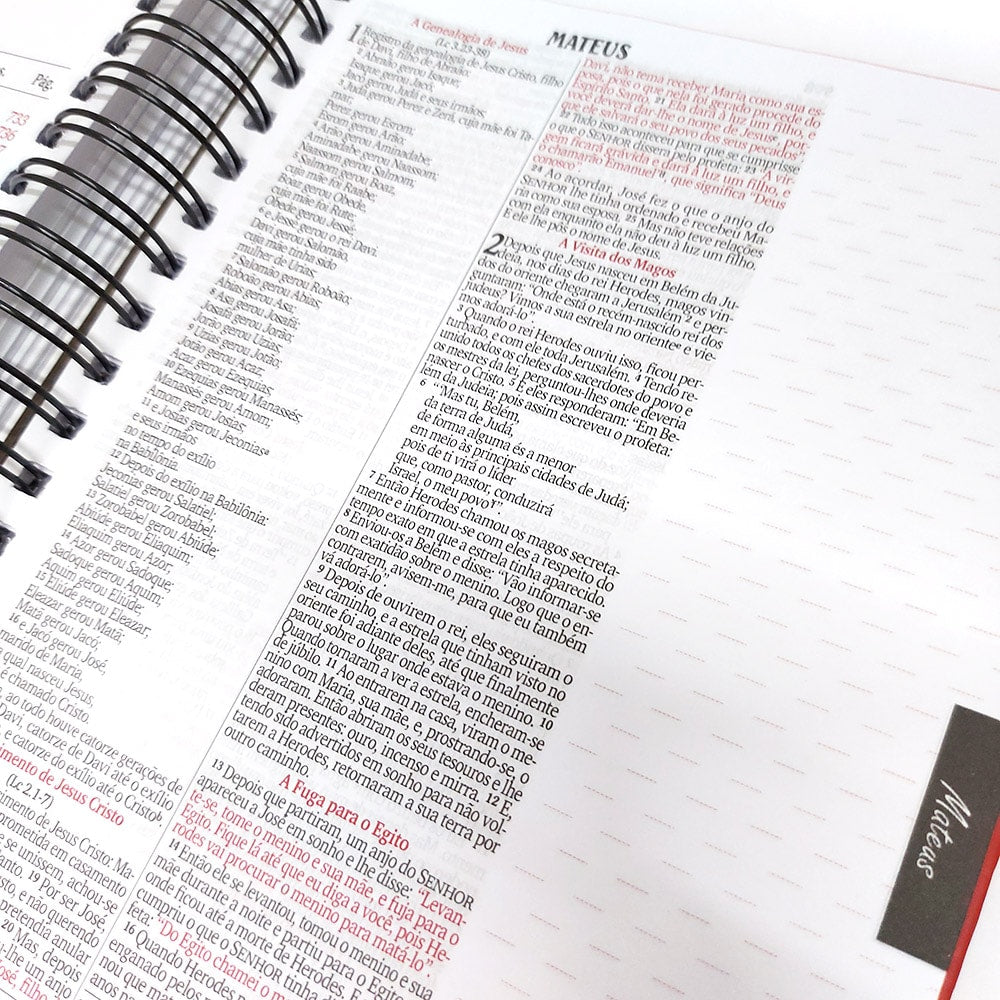 s. Pág.
733
736
MATEUS
A Genealogia de Jesus
(Lc 3.23-38)
1 Registro da genealogia de Jesus Cristo, filho
de Davi, filho de Abraão:
2 Abraão gerou Isaque;
Isaque gerou Jacó;
Jacó gerou Judá e seus irmãos;
3 Judá gerou Perez e Zerá, cuja mãe foi Ta-
mar;
Perez gerou Esrom;
Esrom gerou Arão;
4 Arão gerou Aminadabe;
Aminadabe gerou Naassom;
Naassom gerou Salmom;
5 Salmom gerou Boaz,
cuja mãe foi Raabe;
Boaz gerou Obede,
cuja mãe foi Rute;
Obede gerou Jessé;
6 e Jessé gerou o rei Davi.
Davi gerou Salomão,
cuja mãe tinha sido
mulher de Urias;
7 Salomão gerou Roboão;
Roboão gerou Abias;
Abias gerou Asa;
8 Asa gerou Josafá;
Josafá gerou Jorão;
Jorão gerou Uzias;
9 Uzias gerou Jotão;
Jotão gerou Acaz;
Acaz gerou Ezequias;
10 Ezequias gerou Manassés;
Manassés gerou Amom;
Amom gerou Josias;
11 e Josias gerou Jeconiasª
e seus irmãos
no tempo do exílio
na Babilônia.
12 Depois do exílio na Babilônia:
Jeconias gerou Salatiel;
Salatiel gerou Zorobabel;
13 Zorobabel gerou Abiúde;
Abiúde gerou Eliaquim;
Eliaquim gerou Azor;
14 Azor gerou Sadoque;
Sadoque gerou Aquim;
Aquim gerou Eliúde;
15 Eliúde gerou Eleazar;
Eleazar gerou Matã;
Matã gerou Jacó;
16 e Jacó gerou José,
marido de Maria,
a qual nasceu Jesus,
é chamado Cristo.
, ao todo houve catorze gerações de
Davi, catorze de Davi até o exílio
, e catorze do exílio até o Cristoᵇ
imento de Jesus Cristo
(Lc 2.1-7)
imento de Jesus Cristo: Ma-
prometida em casamento
e se unissem, achou-se
anto. 19 Por ser José,
sto, e não querendo
pretendia anular
20 Mas, depois
u-lhe um anjo
osé, filho
Davi, não tema receber Maria como sua es-
posa, pois o que nela foi gerado procede do
Espírito Santo. 21 Ela dará à luz um filho, e
você deverá dar-lhe o nome de Jesus, por-
que ele salvará o seu povo dos seus pecados”.
22 Tudo isso aconteceu para que se cumprisse
o que o SENHOR dissera pelo profeta: 23 “A vir-
gem ficará grávida e dará à luz um filho, e
o chamarão Emanuel”, que significa “Deus
conosco”.
24 Ao acordar, José fez o que o anjo do
SENHOR lhe tinha ordenado e recebeu Ma-
ria como sua esposa. 25 Mas não teve relações
com ela enquanto ela não deu à luz um filho.
E ele lhe pôs o nome de Jesus.
A Visita dos Magos
2 Depois que Jesus nasceu em Belém da Ju-
deia, nos dias do rei Herodes, magos vin-
dos do oriente chegaram a Jerusalém 2 e per-
guntaram: “Onde está o recém-nascido rei dos
judeus? Vimos a sua estrela no oriente e vie-
mos adorá-lo”.
3 Quando o rei Herodes ouviu isso, ficou per-
turbado, e com ele toda Jerusalém. 4 Tendo re-
unido todos os chefes dos sacerdotes do povo e
os mestres da lei, perguntou-lhes onde deveria
nascer o Cristo. 5 E eles responderam: “Em Be-
lém da Judeia; pois assim escreveu o profeta:
6 “‘Mas tu, Belém,
da terra de Judá,
de forma alguma és a menor
em meio às principais cidades de Judá;
pois de ti virá o líder
que, como pastor, conduzirá
Israel, o meu povo’”.
7 Então Herodes chamou os magos secreta-
mente e informou-se com eles a respeito do
tempo exato em que a estrela tinha aparecido.
8 Enviou-os a Belém e disse: “Vão informar-se
com exatidão sobre o menino. Logo que o en-
contrarem, avisem-me, para que eu também
vá adorá-lo”.
9 Depois de ouvirem o rei, eles seguiram o
seu caminho, e a estrela que tinham visto no
oriente foi adiante deles, até que finalmente
parou sobre o lugar onde estava o menino. 10
Quando tornaram a ver a estrela, encheram-se
de júbilo. 11 Ao entrarem na casa, viram o me-
nino com Maria, sua mãe, e, prostrando-se, o
adoraram. Então abriram os seus tesouros e lhe
deram presentes: ouro, incenso e mirra. 12 E,
tendo sido advertidos em sonho para não vol-
tarem a Herodes, retornaram a sua terra por
outro caminho.
A Fuga para o Egito
13 Depois que partiram, um anjo do SENHOR
apareceu a José em sonho e lhe disse: “Levan-
te-se, tome o menino e sua mãe, e fuja para o
Egito. Fique lá até que eu diga a você, pois He-
rodes vai procurar o menino para matá-lo”.
14 Então ele se levantou, tomou o menino e sua
mãe durante a noite e partiu para o Egito,
onde ficou até a morte de Herodes. E
cumpriu o que o SENHOR tinha
feta: “Do Egito chamei o m
16 Quando Herodes
enganado pelos
nou que ma
anos pa
Mateus